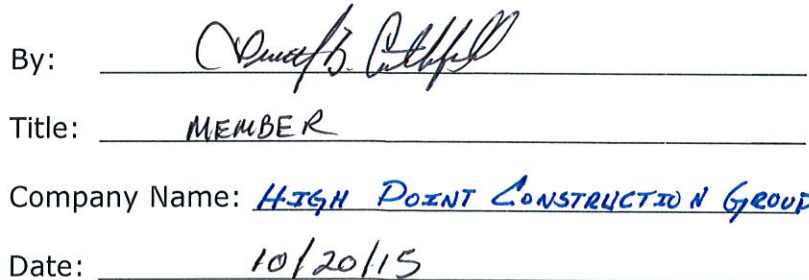 By:
Title: MEMBER
Company Name: HIGH POINT CONSTRUCTION GROUP
Date: 10/20/15